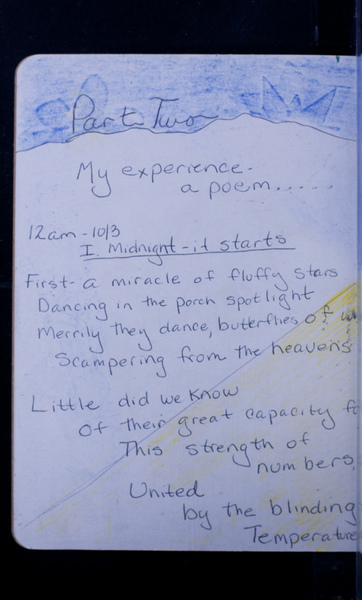 Part Two
My experience-
a poem.....
12am - 10/3
I. Midnight - it starts
First- a miracle of fluffy stars
Dancing in the porch spotlight
Merrily they dance, butterflies of
Scampering from the heavens
Little did we know
Of their great capacity
This strength of
numbers,
United
by the blinding
Temperature